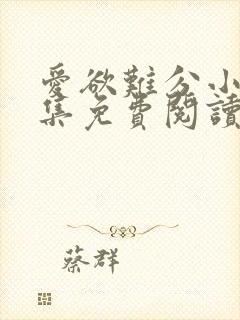 愛欲難分小
集免費閱讀
蔡群